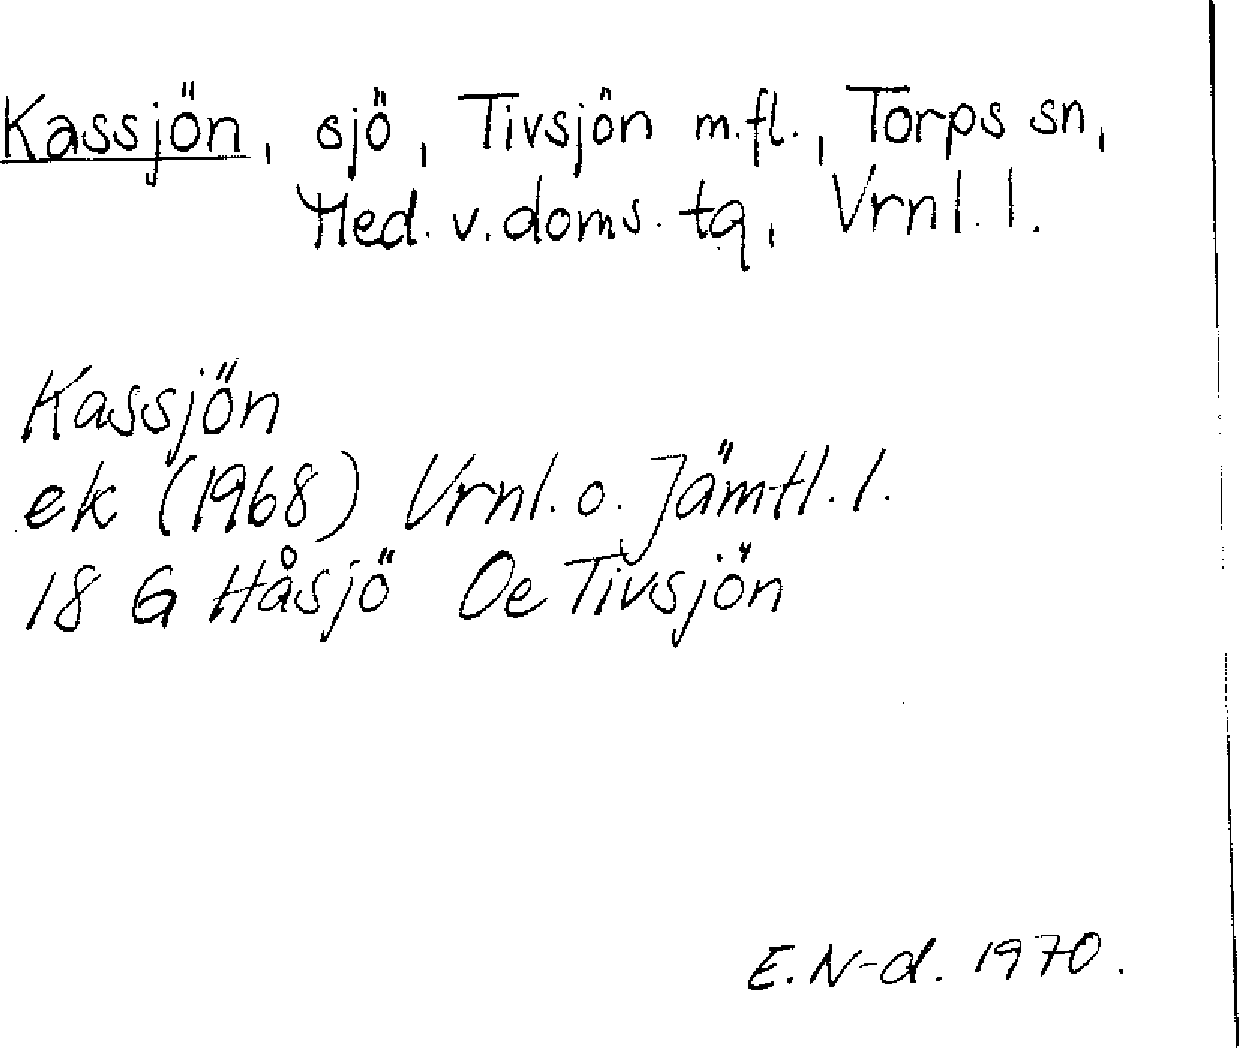 Kassjön, sjö, Tivsjön m.fl., Torps sn,
Med. v. doms. tg, Vrnl. l.
Kassjön
ek (1968) Vrnl. o. Jämtl. l.
18 G Håsjö Oe Tivsjön
E. N-d. 1970.